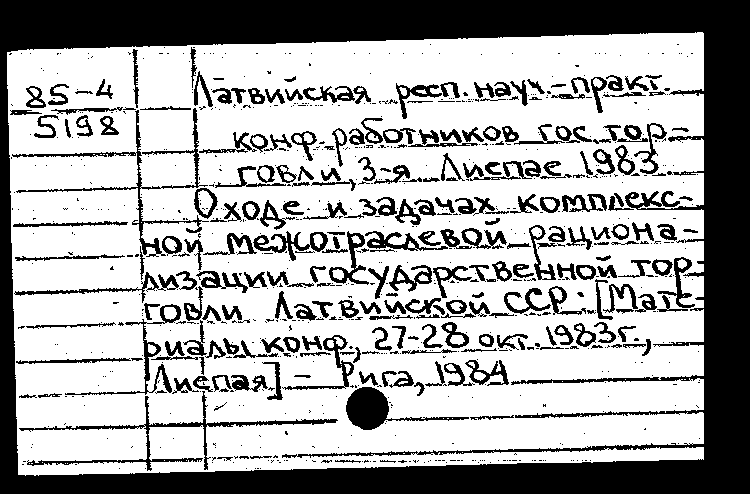 85-4
5198
Латвийская респ. науч.-практ.
конф. работников гос тор-
говли, 3-я Лиепае 1983
О ходе и задачах комплекс-
ной межотраслевой рациона-
лизации государственной тор-
говли Латвийской ССР. [Мате-
риалы конф., 27-28 окт. 1983г.,
Лиепая] - Рига, 1984